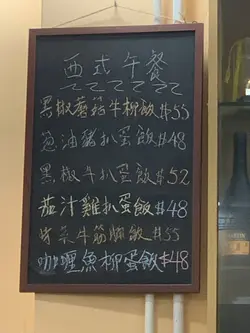 西式午餐
黑椒蘑菇牛柳飯$55
葱油豬扒蛋飯$48
黑椒牛扒蛋飯$52
茄汁雞扒蛋飯$48
牛筋腩飯$55
咖喱魚柳蛋飯$48